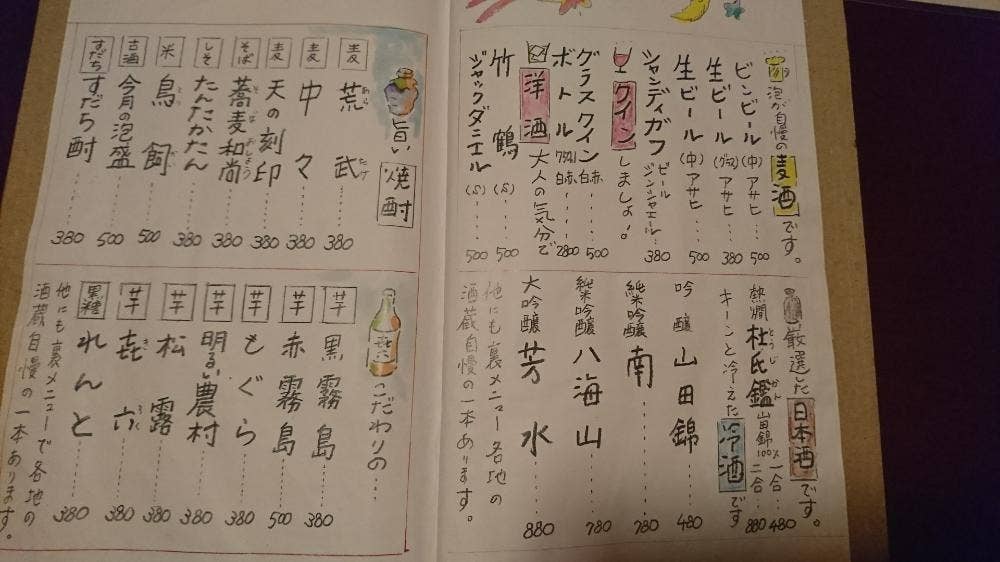 泡が自慢の麦酒です。
ビンビール(中)アサヒ・・・500
生ビール(グラス)アサヒ・・・380
生ビール(中)アサヒ・・・500
シャンディガフ ビール ジンジャエール・・・380
ワインしましょ！
グラスワイン 赤 白・・・500
ボトル フルボトル 赤 白・・・2800
洋酒 大人の気分で
竹鶴(S)・・・500
ジャックダニエル(S)・・・500
厳選した日本酒です。
熱燗 杜氏鑑 とうじかん 山田錦100% 一合・・・480 二合・・・880
キーンと冷えた冷酒です
吟醸 山田錦・・・480
純米吟醸 南・・・780
純米吟醸 八海山・・・780
大吟醸 芳水・・・880
他にも裏メニュー各地の
酒蔵自慢の一本あります。
旨い焼酎
麦 荒武 あらたけ・・・380
麦 中々・・・380
麦 天の刻印・・・380
そば 蕎麦和尚 そばおしょう・・・380
しそ たんたかたん・・・380
米 鳥飼 とりかい・・・500
古酒 今月の泡盛・・・500
すだち すだち酎・・・380
こだわりの…
芋 黒霧島・・・380
芋 赤霧島・・・500
芋 もぐら・・・380
芋 明るい農村・・・380
芋 松露・・・380
芋 㐂六 きろく・・・380
黒糖 れんと・・・380
他にも裏メニューで各地の
酒蔵自慢の一本あります。